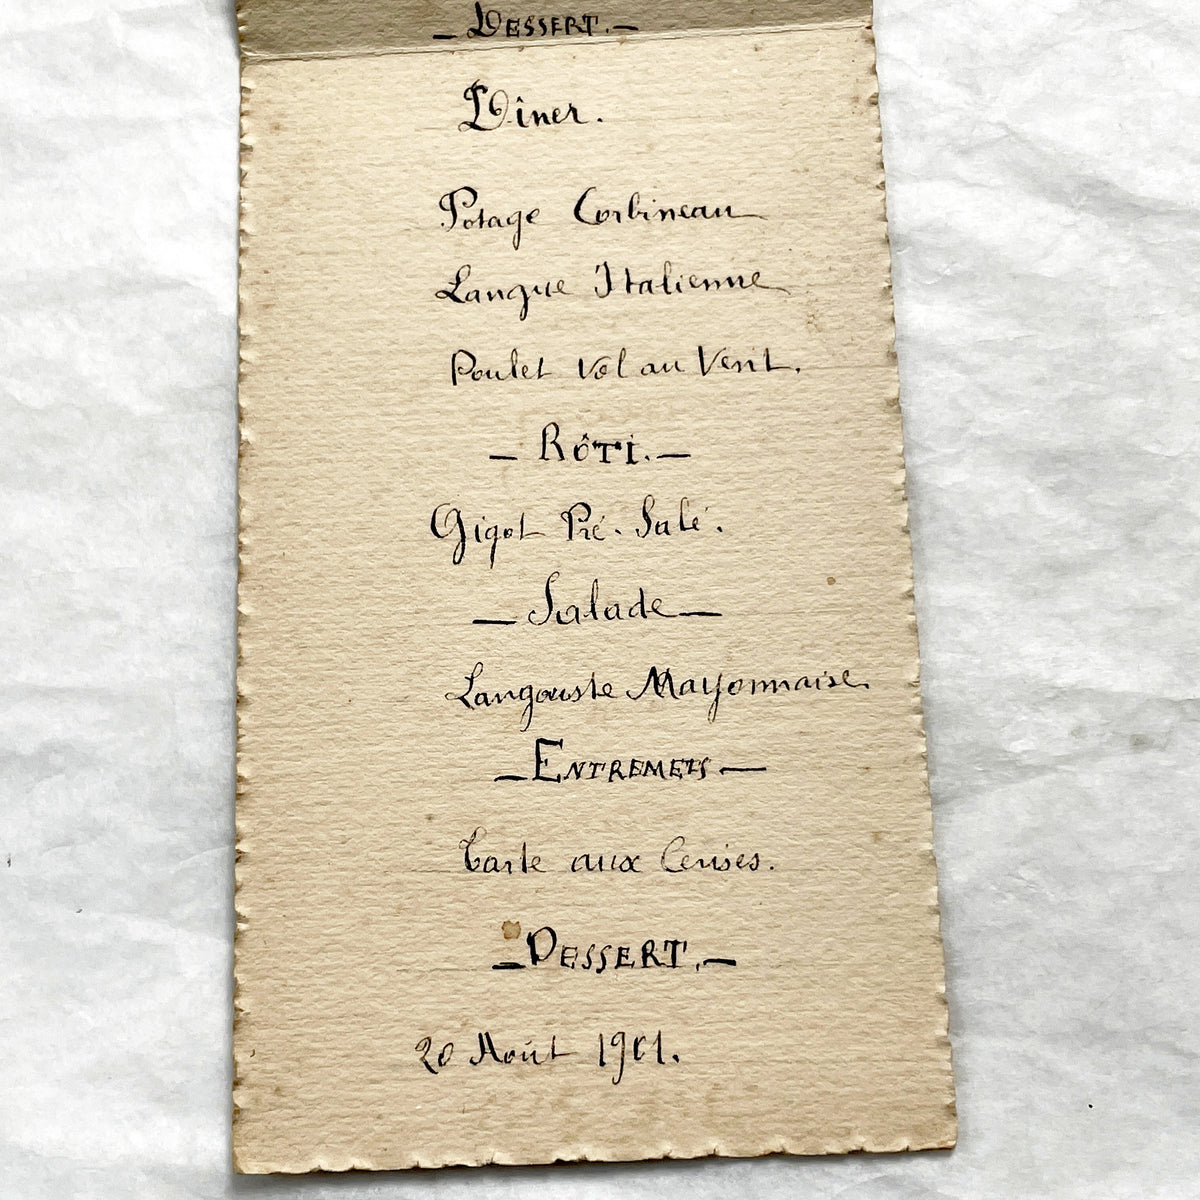 — DESSERT. —
Dîner.
Potage Corbineau
Langue Italienne
Poulet Vol au Vent.
— RôTi. —
Gigot Pré-Salé.
— Salade —
Langouste Mayonnaise
— ENTREMETS —
Tarte aux Cerises.
— DESSERT. —
20 Août 1901.